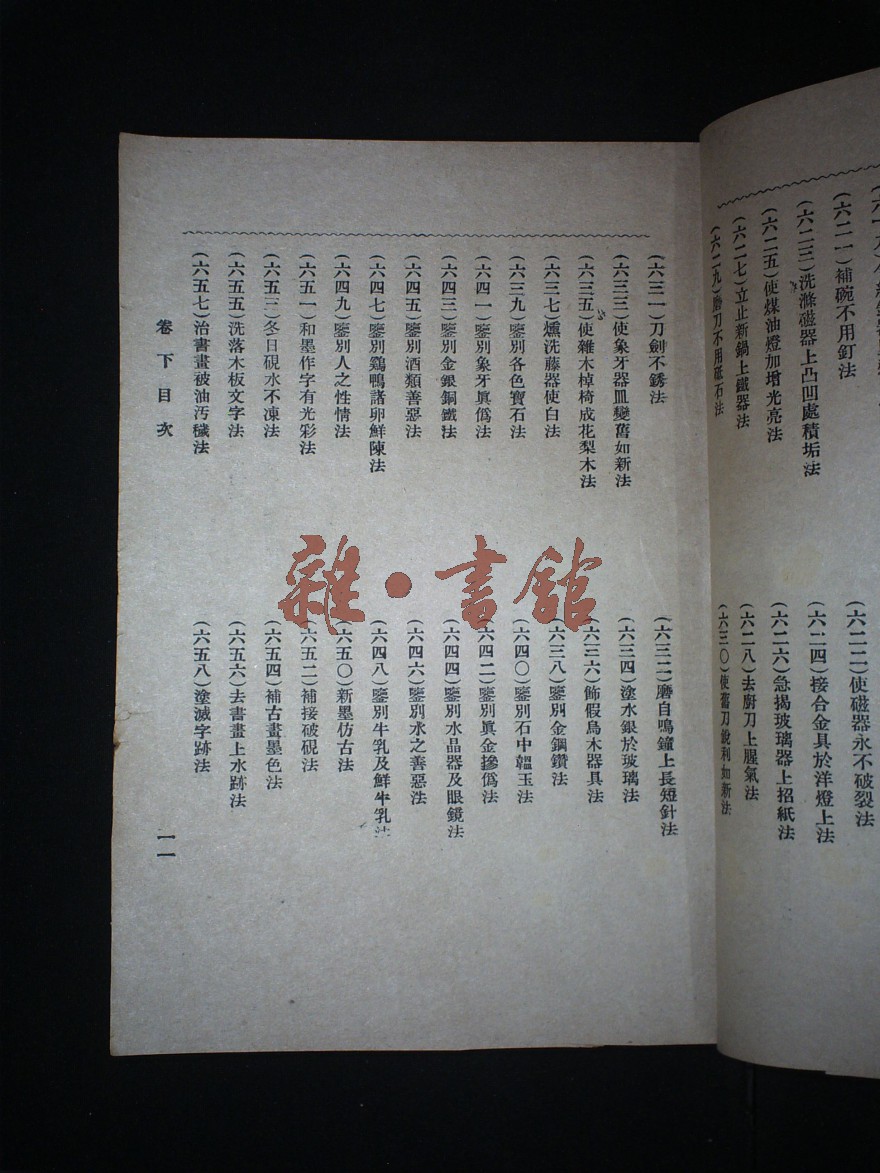 (六二一)補碗不用釘法
(六二三)洗滌磁器上凸凹處積垢法
(六二五)使煤油燈加增光亮法
(六二七)立止新鍋上鐵器法
(六二九)磨刀不用砥石法
(六二二)使磁器永不破裂法
(六二四)接合金具於洋燈上法
(六二六)急揭玻璃器上招紙法
(六二八)去廚刀上腥氣法
(六三〇)使舊刀銳利如新法
(六三一)刀劍不銹法
(六三三)使象牙器皿變舊如新法
(六三五)使雜木棹椅成花梨木法
(六三七)燻洗藤器使白法
(六三九)鑒別各色寶石法
(六四一)鑒別象牙眞僞法
(六四三)鑒別金銀銅鐵法
(六四五)鑒別酒類善惡法
(六四七)鑒別鷄鴨諸卵鮮陳法
(六四九)鑒別人之性情法
(六五一)和墨作字有光彩法
(六五三)冬日硯水不凍法
(六五五)洗落木板文字法
(六五七)治書畫被油汚穢法
(六三二)磨自鳴鐘上長短針法
(六三四)塗水銀於玻璃法
(六三六)飾假烏木器具法
(六三八)鑒別金鋼鑽法
(六四〇)鑒別石中韞玉法
(六四二)鑒別眞金摻僞法
(六四四)鑒別水晶器及眼鏡法
(六四六)鑒別水之善惡法
(六四八)鑒別牛乳及鮮牛乳法
(六五〇)新墨仿古法
(六五二)補接破硯法
(六五四)補古畫墨色法
(六五六)去書畫上水跡法
(六五八)塗滅字跡法
卷下目次
一一
雜·書館